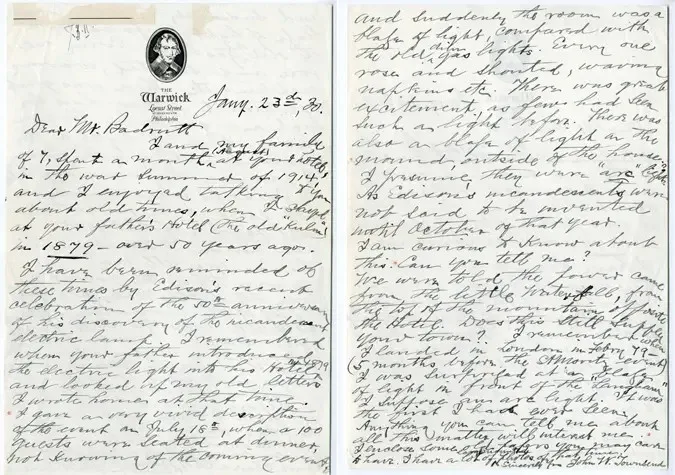 THE
Warwick
Locust Street
Philadelphia
Jany. 23rd, 30.
Dear Mr. Badrutt
I and my family
of 7, spent a month (August) at your hotel
in the war summer of 1914
and I enjoyed talking to you
about old times, when I stayed
at your father's Hotel (the old "Kulm")
in 1879 - over 50 years ago.
I have been reminded of
these times by Edison's recent
celebration of the 50th anniversary
of his discovery of the incandescent
electric lamp. I remembered
when your father introduced
the electric light into his Hotel in 1879
and looked up my old letters
I wrote home at that time.
I gave a very vivid description
of the event on July 18th, when a 100
guests were seated at dinner,
not knowing of the coming event,
and suddenly the room was a
blaze of light, compared with
the old dim gas lights. Every one
rose and shouted, waving
napkins etc. There was great
excitement, as few had seen
such a light before. There was
also a blaze of light on the
mound, outside of the house.
I presume they were arc
As Edison's incandescents were
not said to be invented
until October of that year.
I am curious to know about
this. Can you tell me?
We were told the power came
from the little Waterfall, from
the top of the mountain opposite
the Hotel. Does this still supply
your town? I remember when
I landed in London in Febry 79 -
(5 months before the St Moritz event)
I was surprised at a "blaze
of light" in front of the "Langham"
I suppose an arc light. It was
the first I had ever seen.
Anything you can tell me about
all this matter will interest me.
I enclose some you may care
to have. I have a lot of photos of that time.
Sincerely yrs John W. Townsend